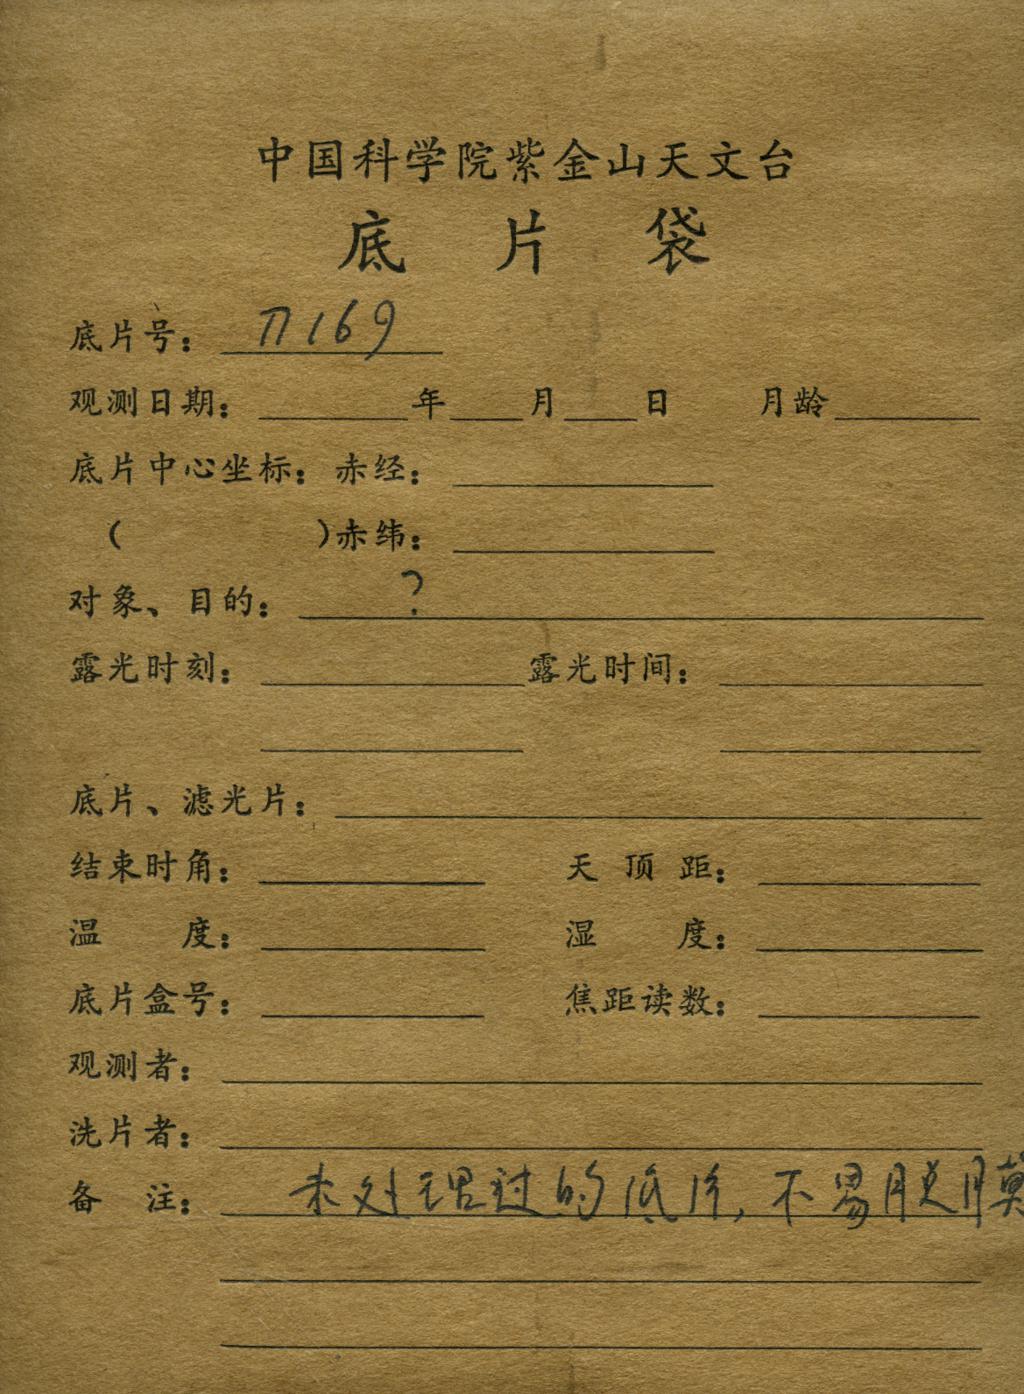 中国科学院紫金山天文台
底片袋
底片号： П169
观测日期： 年 月 日 月龄
底片中心坐标：赤经：
（ ）赤纬：
对象、目的： ?
露光时刻： 露光时间：
底片、滤光片：
结束时角： 天顶距：
温度： 湿度：
底片盒号： 焦距读数：
观测者：
洗片者：
备注： 未处理过的底片，不易脱膜